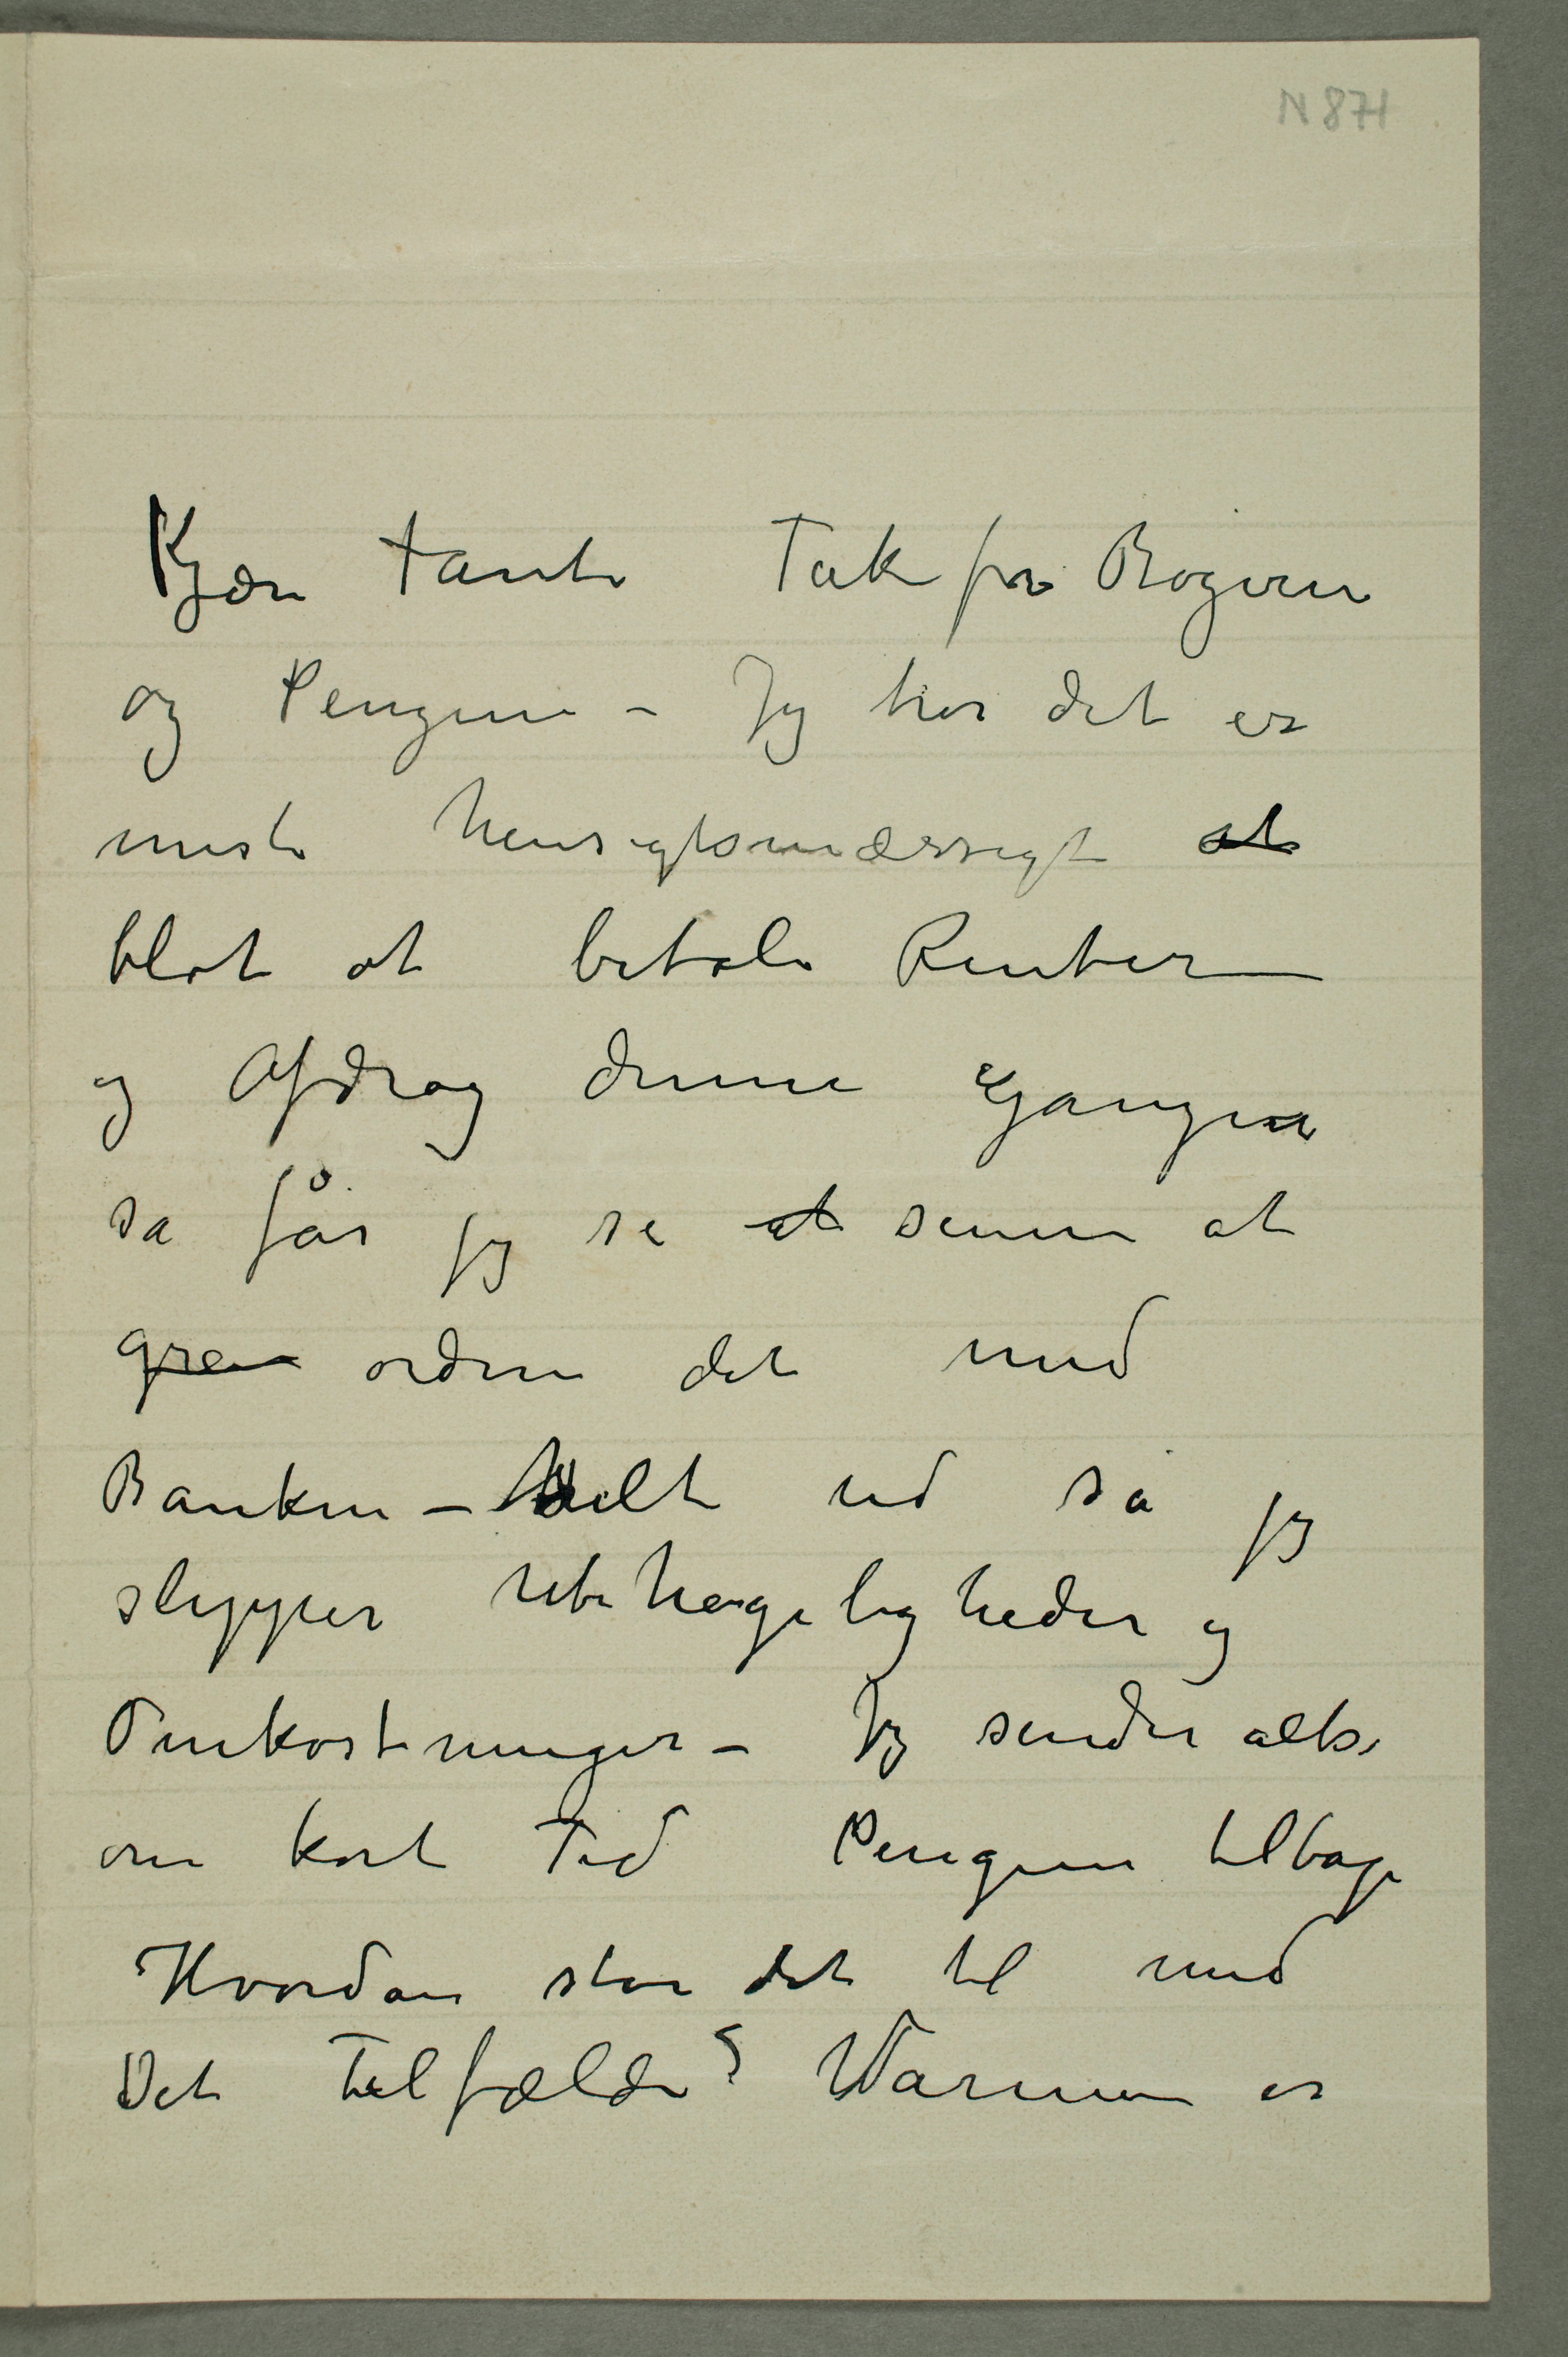 N 871
Kjære tante Tak for Bøgerne
og Pengene – Jeg tror det er
mest hensigtsmæssigt at
blot at betale Renter
og Afdrag denne Gangen
så får jeg se at senere at
gre ordne det med
Banken – helt ud så jeg
slipper Ubehageligheder og
Omkostninger – Jeg sender altså
om kort Tid Pengene tilbage
Hvordan står det til med
Det Tilfælde? Varmen er